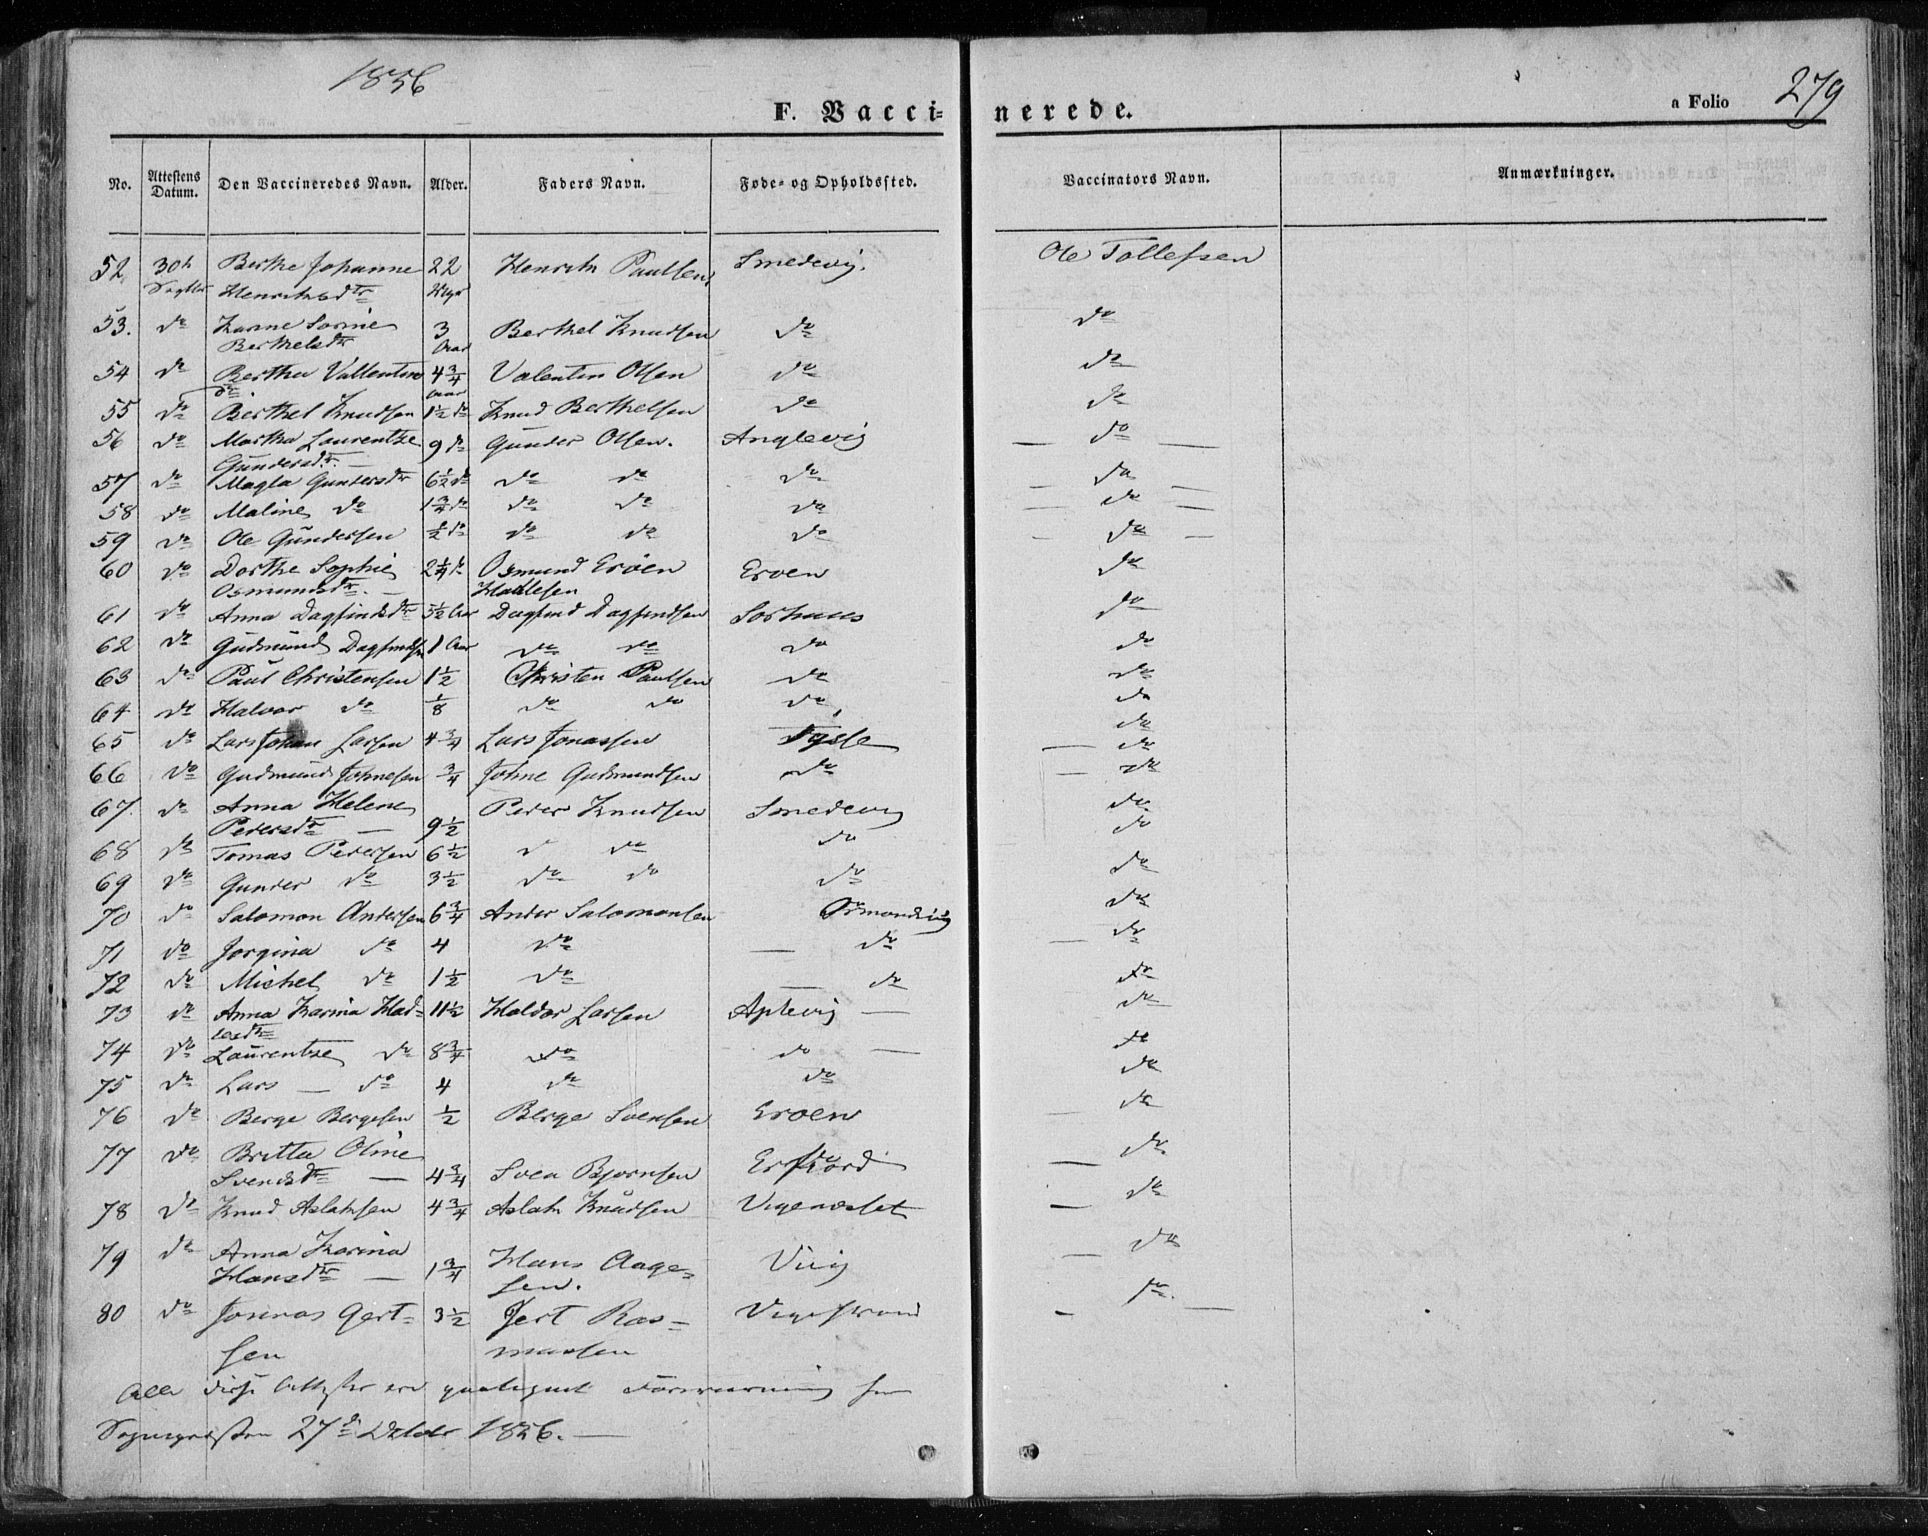 1856
279
F. Vaccinerede.
a Folio
No. Attestens Datum. Den Vaccineredes Navn. Alder. Faders Navn. Føde- og Opholdssted. Vaccinators Navn. Anmærkninger.
52 30te Berthe Johanne 22 Henrik Paulsen Smedevig. Ole Tollefsen
Henriksdtr Uger
53. do Karine Sorine 3 Berthel Knudsen do do
Berthelsdtr Aar
54 do Berthea Vallentins 4 3/4 Valentin Olsen do do
dtr. Aar
55 do Berthel Knudsen 1 1/2 do Knud Berthelsen do do
56 do Martha Laurentze 9 do Gunder Olsen. Anglevig — do —
Gundersdtr. —
57 do Magla Gundersdtr 6 1/2 do do do do — do —
58 do Maline do 1 3/4 do do do do — do —
59 do Ole Gundersen 1/2 do do do do - do -
60 do Dorthe Sophie 2 1/4 do Osmund Erøen Eroen do
Osmundsdtr. — Hadlesen
61 do Anna Dagfindsdtr 5 1/2 Aar Dagfind Dagfindsen Sorhuus do
62 do Gudmund Dagfindsen 1 Aar do do do do
63 do Paul Christensen 1 1/2 Christen Paulsen do do
64 do Halvor do 1/8 do do do do
65 do Lars Johan Larsen 4 3/4 Lars Jonassen Tysse do
66 do Gudmund Johnesen 3/4 Johne Gudmundsen do — do
67. do Anna Helene Peder Knudsen Smedevig do
Pedersdtr — 9 1/2
68 do Tomas Pedersen 6 1/2 do do do do
69 do Gunder do 3 1/2 do do do do
70 do Salomon Andersen 6 3/4 Ander Salomonsen Osmundvig do
71 do Jorgina do 4 do — do — do
72 do Mickel do 1 1/2 do — do do
73 do Anna Karina Had- 11 1/2 Haldor Larsen Aplevig — do
lesdtr
74 do Laurentze do 8 3/4 do do — do
75 do Lars — do 4 do do do
76 do Berge Bergesen 1/2 Berge Svensen Eroen — do
77 do Britta Oline do
Svendsdtr — 4 3/4 Sven Bjornsen Erfjord —
78 do Knud Aslaksen 4 3/4 Aslak Knudsen Vigenesset — do
79 do Anna Karina Hans Aage- Viig — do
Hansdtr — 1 3/4 sen.
80 do Jonnas Gert- 3 1/2 Gert Ras- Vigestrand - do. —
sen massen
Alle disse Attester ere
27de 1856. —